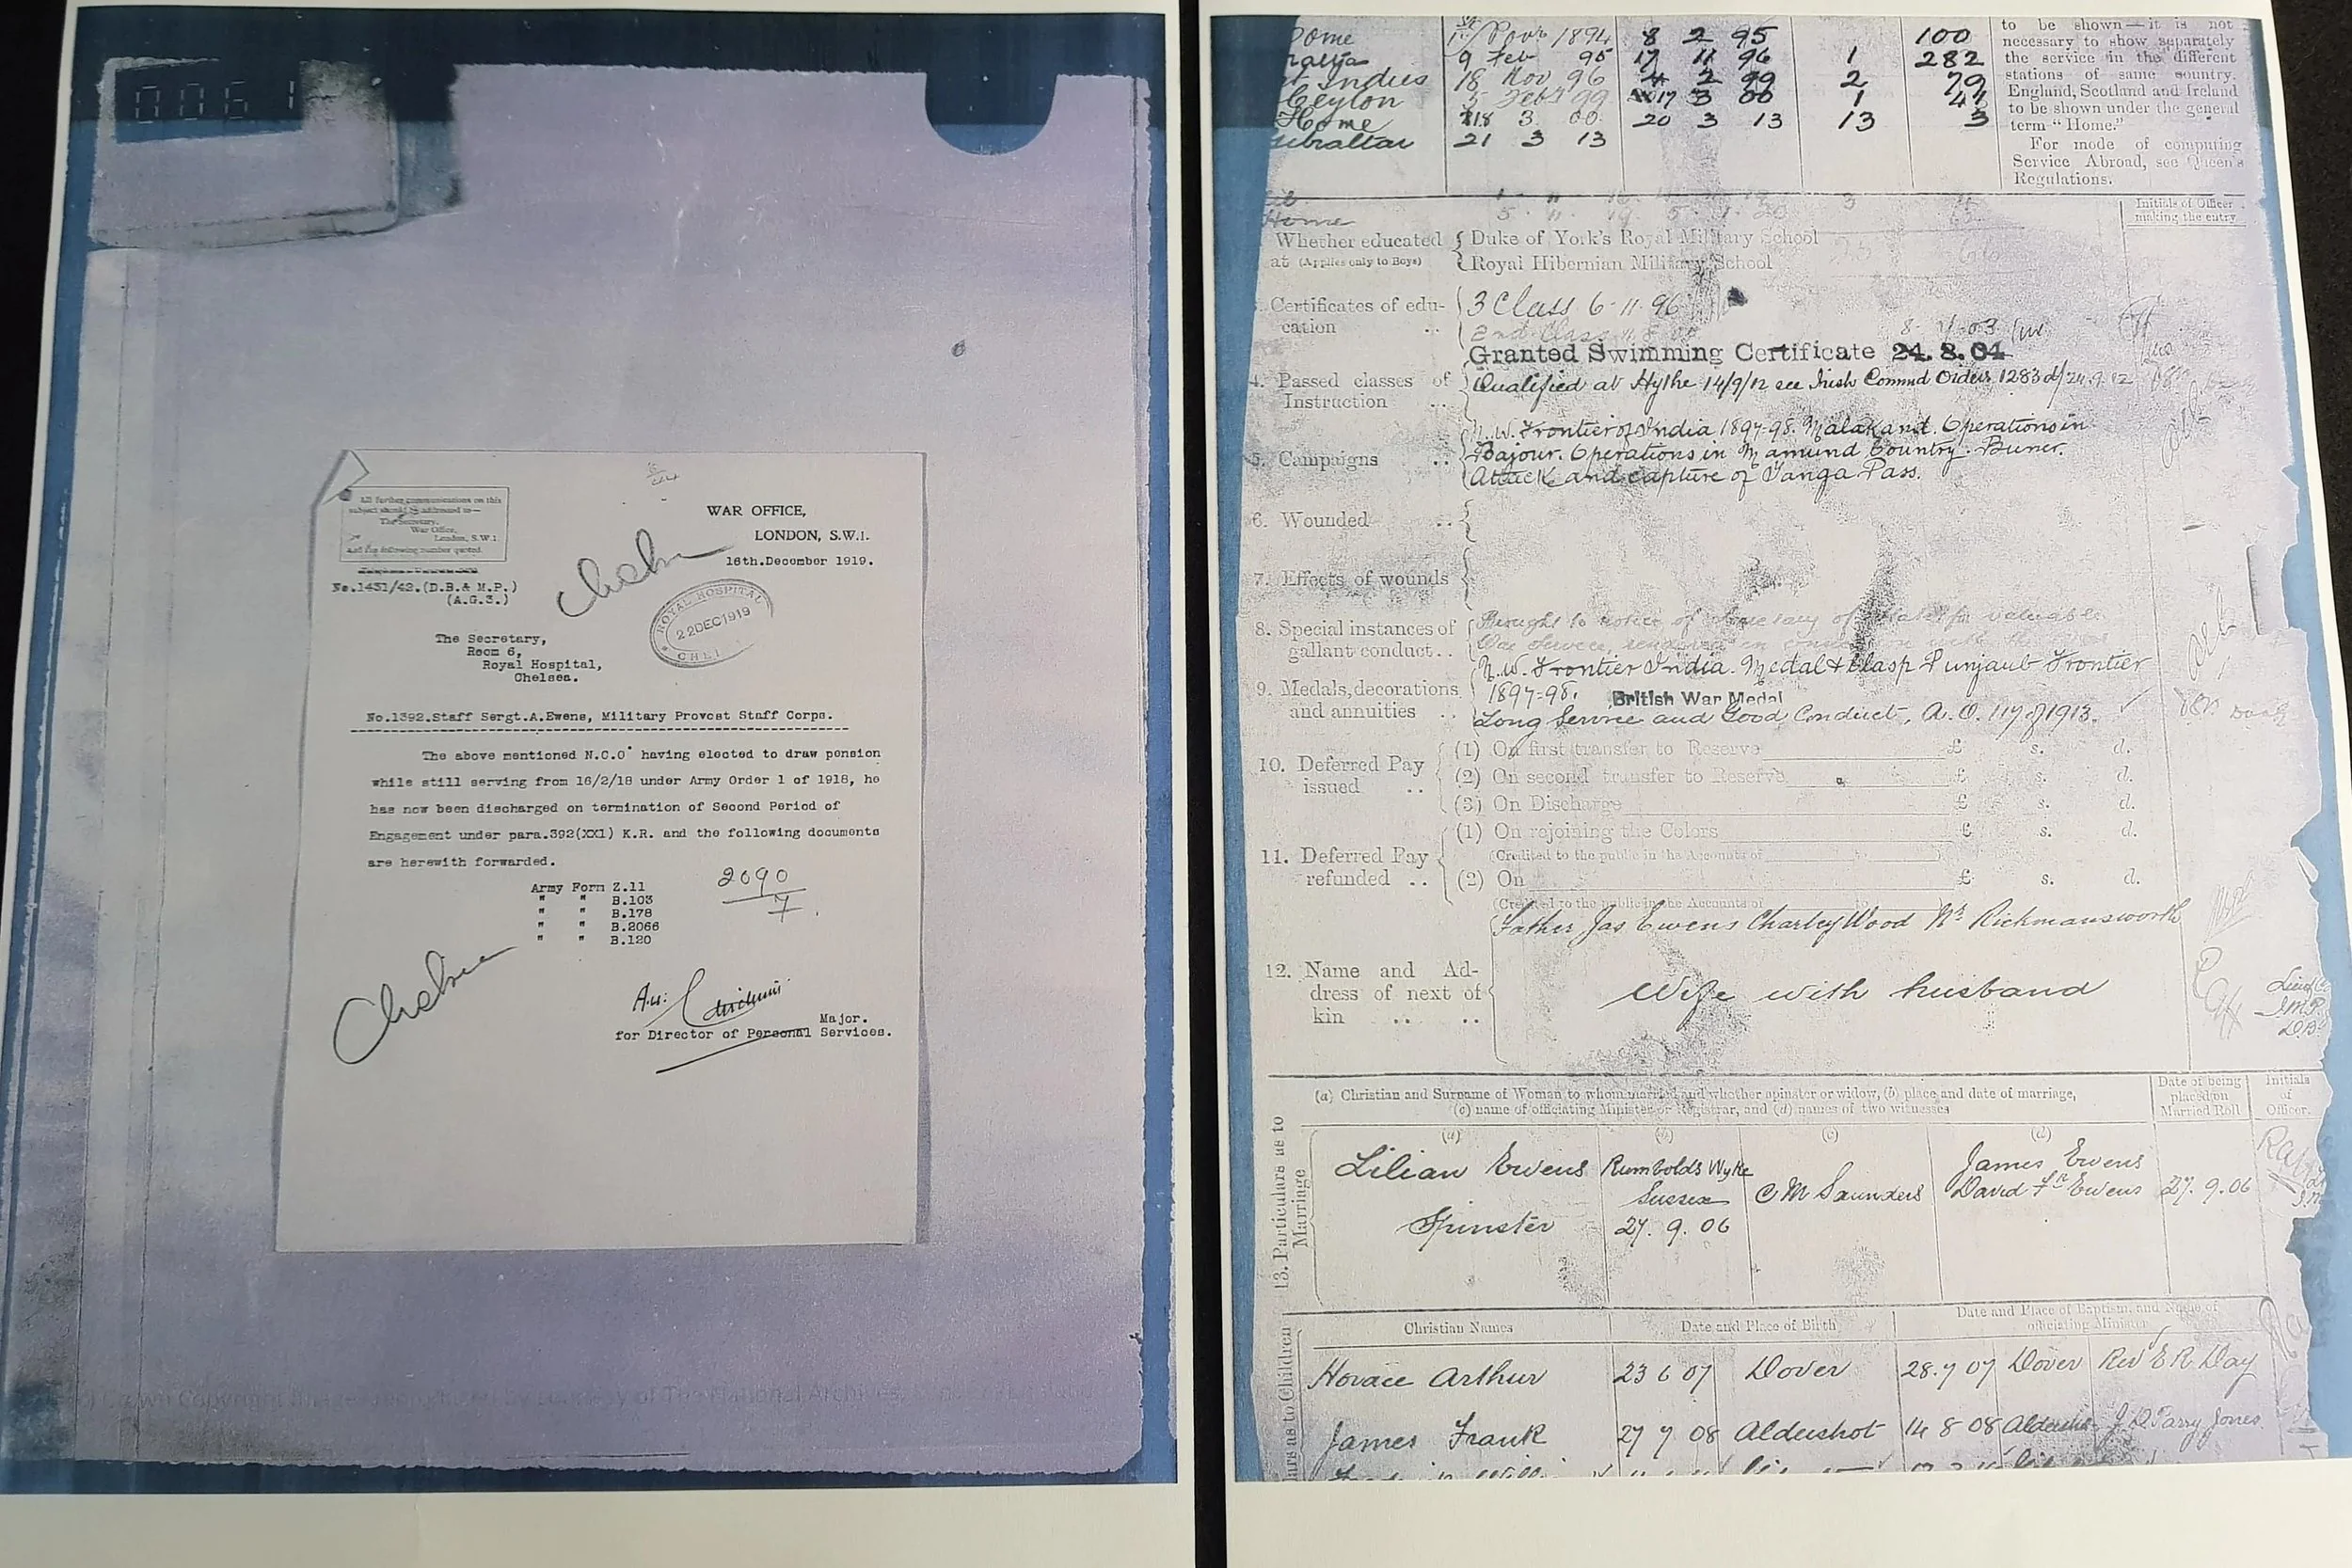 0061
All further communications on this
subject should be addressed to—
The Secretary,
War Office,
London, S.W.1.
and the following number quoted.
WAR OFFICE,
LONDON, S.W.1.
16th.December 1919.
No.1431/42.(D.B.& M.P.)
(A.G.3.)
ROYAL HOSPITAL
22 DEC 1919
The Secretary,
Room 6,
Royal Hospital,
Chelsea.
No.1392.Staff Sergt.A.Ewens, Military Provost Staff Corps.
The above mentioned N.C.O. having elected to draw pension
while still serving from 16/2/18 under Army Order 1 of 1918, he
has now been discharged on termination of Second Period of
Engagement under para.392(XXI) K.R. and the following documents
are herewith forwarded.
Army Form Z.11
" " B.103
" " B.178
" " B.2066
" " B.120
2090
7
Major.
for Director of Personal Services.
Crown Copyright Images reproduced by courtesy of The National Archives,
ome 1894 8 2 95 100
9 Feb 95 17 11 96 1 282
Indies 18 Nov 96 4 2 99 2 79
Ceylon 5 Feb 99 17 3 00 1 41
Home 18 3 00 20 3 13 13 3
Gibraltar 21 3 13
to be shown—it is not
necessary to show separately
the service in the different
stations of same country.
England, Scotland and Ireland
to be shown under the general
term "Home."
For mode of computing
Service Abroad, see Queen's
Regulations.
Home
Initials of Officer
making the entry
Whether educated at (Applies only to Boys)
Duke of York's Royal Military School
Royal Hibernian Military School
Certificates of education ..
3 Class 6-11-96
2nd Class
Granted Swimming Certificate 24.8.04
4. Passed classes of Instruction ..
Qualified at Hythe 14/9/12 see Irish Commd Orders 1283 d/24.9.12
5. Campaigns ..
N.W. Frontier of India 1897-98. Malakand. Operations in
Bajour. Operations in Mamund Country. Buner.
Attack and capture of Tanga Pass.
6. Wounded ..
7. Effects of wounds
8. Special instances of gallant conduct ..
Brought to notice of Secretary of State for valuable
War Services rendered in connection with the
9. Medals, decorations and annuities ..
N.W. Frontier India. Medal & Clasp Punjaub Frontier
1897-98. British War Medal
Long Service and Good Conduct, A.O. 117 of 1913.
10. Deferred Pay issued ..
(1) On first transfer to Reserve £ s. d.
(2) On second transfer to Reserve £ s. d.
(3) On Discharge £ s. d.
11. Deferred Pay refunded ..
(1) On rejoining the Colors £ s. d.
(Credited to the public in the Accounts of to )
(2) On £ s. d.
(Credited to the public in the Accounts of to )
12. Name and Address of next of kin .. ..
Father Jas Ewens Charley Wood Nr Rickmansworth
Wife with husband
13. Particulars as to Marriage
(a) Christian and Surname of Woman to whom married and whether spinster or widow, (b) place and date of marriage,
(c) name of officiating Minister or Registrar, and (d) names of two witnesses
Date of being
placed on
Married Roll
Initials
of
Officer.
(a) (b) (c) (d)
Lilian Ewens
Spinster
Rumbolds Wyke
Sussex
27. 9. 06
C M Saunders
James Ewens
David Fn Ewens
27. 9. 06
Christian Names
Date and Place of Birth
Date and Place of Baptism, and Name of
officiating Minister
Horace Arthur 23 6 07 Dover 28.7 07 Dover Rev E R Day
James Frank 27 7 08 Aldershot 14 8 08 Aldershot J D Parry Jones